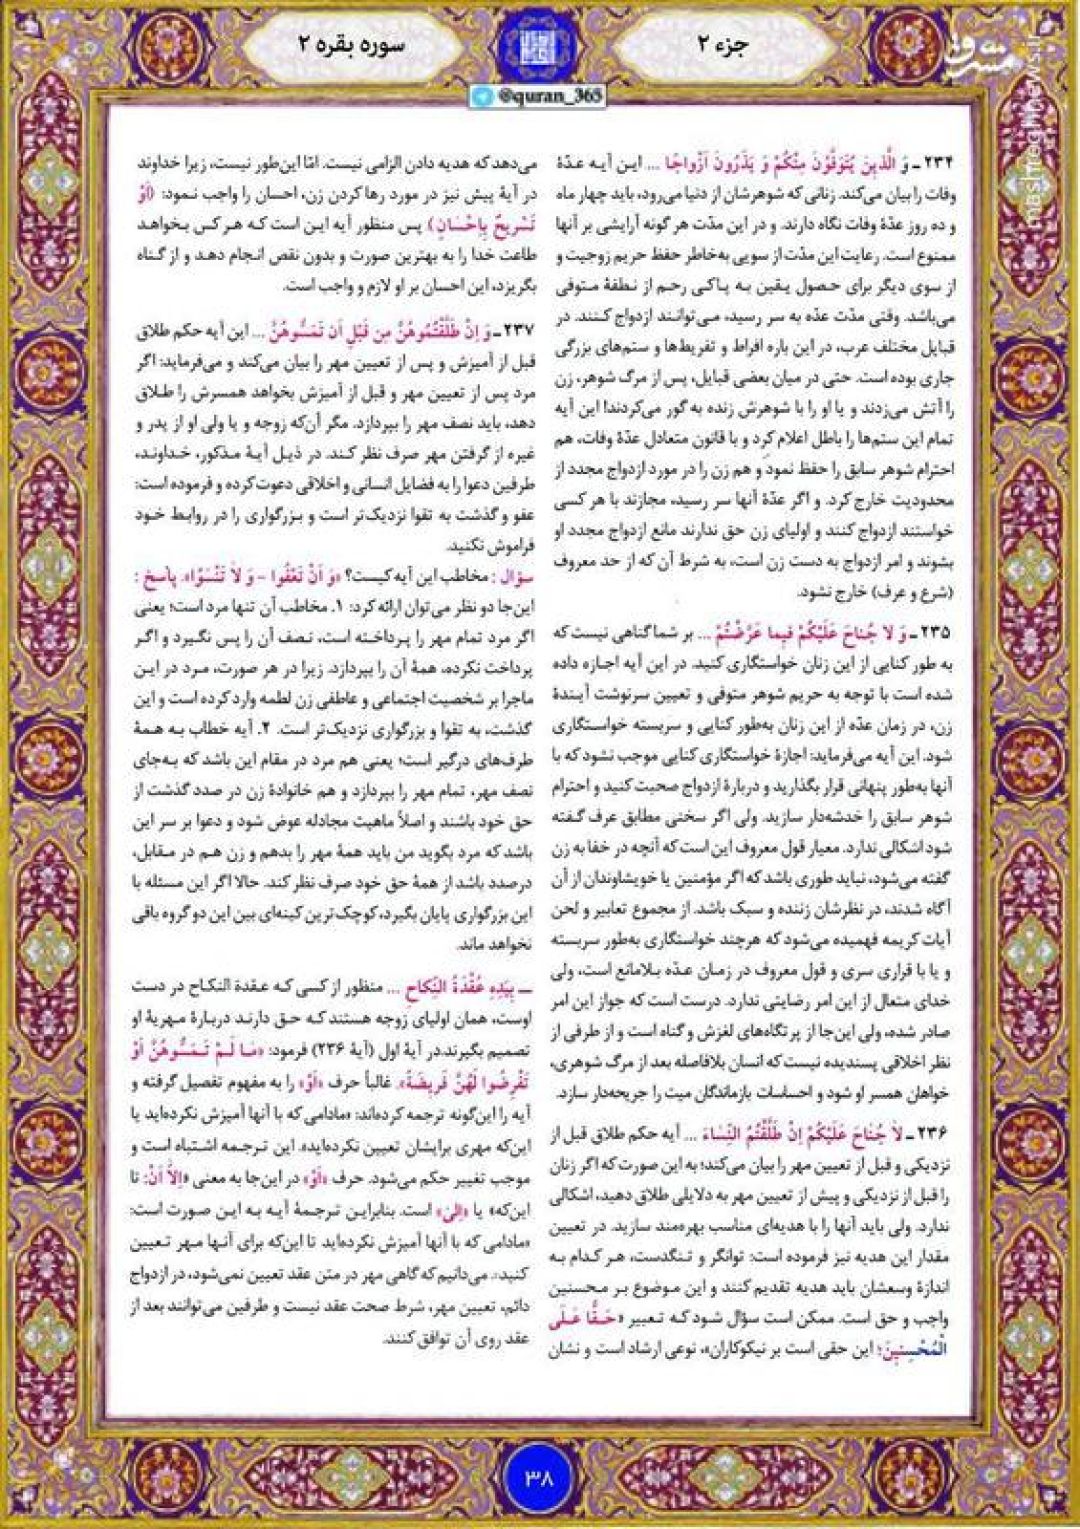 جزء ۲
سوره بقره ۲
@quran_365
مشرق
mashreghnews.ir
۲۳۴ـ وَ الَّذینَ یُتَوَفَّوْنَ مِنْکُمْ وَ یَذَرُونَ اَزْواجًا ... این آیه عدّهٔ
وفات را بیان می‌کند. زنانی که شوهرشان از دنیا می‌رود، باید چهار ماه
و ده روز عدّهٔ وفات نگاه دارند. و در این مدّت هر گونه آرایشی بر آنها
ممنوع است. رعایت این مدّت از سویی به‌خاطر حفظ حریم زوجیت و
از سوی دیگر برای حصول یقین به پاکی رحم از نطفهٔ متوفی
می‌باشد. وقتی مدّت عدّه به سر رسید، می‌توانند ازدواج کنند. در
قبایل مختلف عرب، در این باره افراط و تفریط‌ها و ستم‌های بزرگی
جاری بوده است. حتی در میان بعضی قبایل، پس از مرگ شوهر، زن
را آتش می‌زدند و یا او را با شوهرش زنده به گور می‌کردند! این آیه
تمام این ستم‌ها را باطل اعلام کرد و با قانون متعادل عدّهٔ وفات، هم
احترام شوهر سابق را حفظ نمود و هم زن را در مورد ازدواج مجدد از
محدودیت خارج کرد. و اگر عدّهٔ آنها سر رسید، مجازند با هر کسی
خواستند ازدواج کنند و اولیای زن حق ندارند مانع ازدواج مجدد او
بشوند و امر ازدواج به دست زن است، به شرط آن که از حد معروف
(شرع و عرف) خارج نشود.
۲۳۵ـ وَ لا جُناحَ عَلَیْکُمْ فیما عَرَّضْتُمْ ... بر شما گناهی نیست که
به طور کنایی از این زنان خواستگاری کنید. در این آیه اجازه داده
شده است با توجه به حریم شوهر متوفی و تعیین سرنوشت آیندهٔ
زن، در زمان عدّه از این زنان به‌طور کنایی و سربسته خواستگاری
شود. این آیه می‌فرماید: اجازهٔ خواستگاری کنایی موجب نشود که با
آنها به‌طور پنهانی قرار بگذارید و دربارهٔ ازدواج صحبت کنید و احترام
شوهر سابق را خدشه‌دار سازید. ولی اگر سخنی مطابق عرف گفته
شود اشکالی ندارد. معیار قول معروف این است که آنچه در خفا به زن
گفته می‌شود، نباید طوری باشد که اگر مؤمنین یا خویشاوندان از آن
آگاه شدند، در نظرشان زننده و سبک باشد. از مجموع تعابیر و لحن
آیات کریمه فهمیده می‌شود که هرچند خواستگاری به‌طور سربسته
و یا با قراری سری و قول معروف در زمان عدّه بلامانع است، ولی
خدای متعال از این امر رضایتی ندارد. درست است که جواز این امر
صادر شده، ولی این‌جا از پرتگاه‌های لغزش و گناه است و از طرفی از
نظر اخلاقی پسندیده نیست که انسان بلافاصله بعد از مرگ شوهری،
خواهان همسر او شود و احساسات بازماندگان میت را جریحه‌دار سازد.
۲۳۶ـ لا جُناحَ عَلَیْکُمْ اِنْ طَلَّقْتُمُ النِّساءَ ... آیه حکم طلاق قبل از
نزدیکی و قبل از تعیین مهر را بیان می‌کند؛ به این صورت که اگر زنان
را قبل از نزدیکی و پیش از تعیین مهر به دلایلی طلاق دهید، اشکالی
ندارد. ولی باید آنها را با هدیه‌ای مناسب بهره‌مند سازید. در تعیین
مقدار این هدیه نیز فرموده است: توانگر و تنگدست، هر کدام به
اندازهٔ وسعشان باید هدیه تقدیم کنند و این موضوع بر محسنین
واجب و حق است. ممکن است سؤال شود که تعبیر «حَقًّا عَلَی
الْمُحْسِنینَ؛ این حقی است بر نیکوکاران»، نوعی ارشاد است و نشان
می‌دهد که هدیه دادن الزامی نیست. امّا این‌طور نیست، زیرا خداوند
در آیهٔ پیش نیز در مورد رها کردن زن، احسان را واجب نمود: (اَوْ
تَسْریحٌ بِاِحْسانٍ) پس منظور آیه این است که هر کس بخواهد
طاعت خدا را به بهترین صورت و بدون نقص انجام دهد و از گناه
بگریزد، این احسان بر او لازم و واجب است.
۲۳۷ـ وَ اِنْ طَلَّقْتُمُوهُنَّ مِن قَبْلِ اَن تَمَسُّوهُنَّ ... این آیه حکم طلاق
قبل از آمیزش و پس از تعیین مهر را بیان می‌کند و می‌فرماید: اگر
مرد پس از تعیین مهر و قبل از آمیزش بخواهد همسرش را طلاق
دهد، باید نصف مهر را بپردازد. مگر آن‌که زوجه و یا ولی او از پدر و
غیره از گرفتن مهر صرف نظر کند. در ذیل آیهٔ مذکور، خداوند،
طرفین دعوا را به فضایل انسانی و اخلاقی دعوت کرده و فرموده است:
عفو و گذشت به تقوا نزدیک‌تر است و بزرگواری را در روابط خود
فراموش نکنید.
سؤال : مخاطب این آیه کیست؟ «وَ اَنْ تَعْفُوا - وَ لا تَنْسَوُا». پاسخ :
این‌جا دو نظر می‌توان ارائه کرد: ۱. مخاطب آن تنها مرد است؛ یعنی
اگر مرد تمام مهر را پرداخته است، نصف آن را پس نگیرد و اگر
پرداخت نکرده، همهٔ آن را بپردازد. زیرا در هر صورت، مرد در این
ماجرا بر شخصیت اجتماعی و عاطفی زن لطمه وارد کرده است و این
گذشت، به تقوا و بزرگواری نزدیک‌تر است. ۲. آیه خطاب به همهٔ
طرف‌های درگیر است؛ یعنی هم مرد در مقام این باشد که به‌جای
نصف مهر، تمام مهر را بپردازد و هم خانوادهٔ زن در صدد گذشت از
حق خود باشند و اصلاً ماهیت مجادله عوض شود و دعوا بر سر این
باشد که مرد بگوید من باید همهٔ مهر را بدهم و زن هم در مقابل،
درصدد باشد از همهٔ حق خود صرف نظر کند. حالا اگر این مسئله با
این بزرگواری پایان بگیرد، کوچک‌ترین کینه‌ای بین این دو گروه باقی
نخواهد ماند.
ــ بِیَدِهِ عُقْدَةُ النِّکاحِ ... منظور از کسی که عقدة النکاح در دست
اوست، همان اولیای زوجه هستند که حق دارند دربارهٔ مهریهٔ او
تصمیم بگیرند. در آیهٔ اول (آیهٔ ۲۳۶) فرمود: «مَا لَمْ تَمَسُّوهُنَّ اَوْ
تَفْرِضُوا لَهُنَّ فَریضَةً». غالباً حرف «اَوْ» را به مفهوم تفصیل گرفته و
آیه را این‌گونه ترجمه کرده‌اند: «مادامی که با آنها آمیزش نکرده‌اید یا
این‌که مهری برایشان تعیین نکرده‌اید». این ترجمه اشتباه است و
موجب تغییر حکم می‌شود. حرف «اَوْ» در این‌جا به معنی «اِلاَّ اَنْ: تا
این‌که» یا «اِلیٰ» است. بنابراین ترجمهٔ آیه به این صورت است:
«مادامی که با آنها آمیزش نکرده‌اید تا این‌که برای آنها مهر تعیین
کنید». می‌دانیم که گاهی مهر در متن عقد تعیین نمی‌شود، در ازدواج
دائم، تعیین مهر، شرط صحت عقد نیست و طرفین می‌توانند بعد از
عقد روی آن توافق کنند.
۳۸